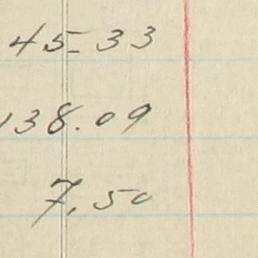 45.33
138.09
7.50